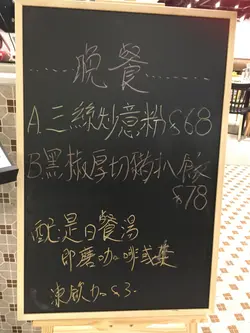 晚餐
A.三絲炒意粉 $68
B.黑椒厚切豬扒飯
$78
配是日餐湯
即磨咖啡或茶
凍飲加$3.